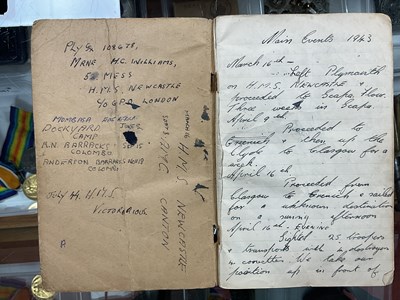 Ply/x 108675,
MRNE H.C. WILLIAMS,
5 MESS
H.M.S. NEWCASTLE
C/O G.P.O. LONDON
MOMBASA
DOCKYARD
(CAMP)
R.N. BARRACKS SEP 15
COLOMBO
ANDERSON BARRACKS
COLOMBO
JULY 44. H.M.S.
VICTORIOUS
MARCH 16
H.M.S NEWCASTLE
CANTON
Main Events 1943
March 16th —
Left Plymouth
on H.M.S. Newcastle &
proceeded to Scapa Flow.
Three weeks in Scapa.
April 9th
Proceeded to
Greenock & then up the
Clyde to Glasgow for a
week.
April 16th
Proceeded from
Glasgow to Greenock & sailed
for a unknown destination
on a sunny afternoon
April 16th. EVENING
Sighted 25 troopers
& transports with destroyers
in convoy. We take our
position up in front of